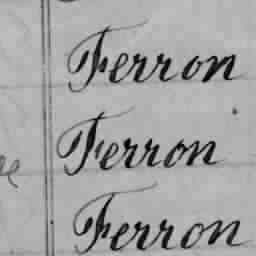 Ferron
Ferron
Ferron